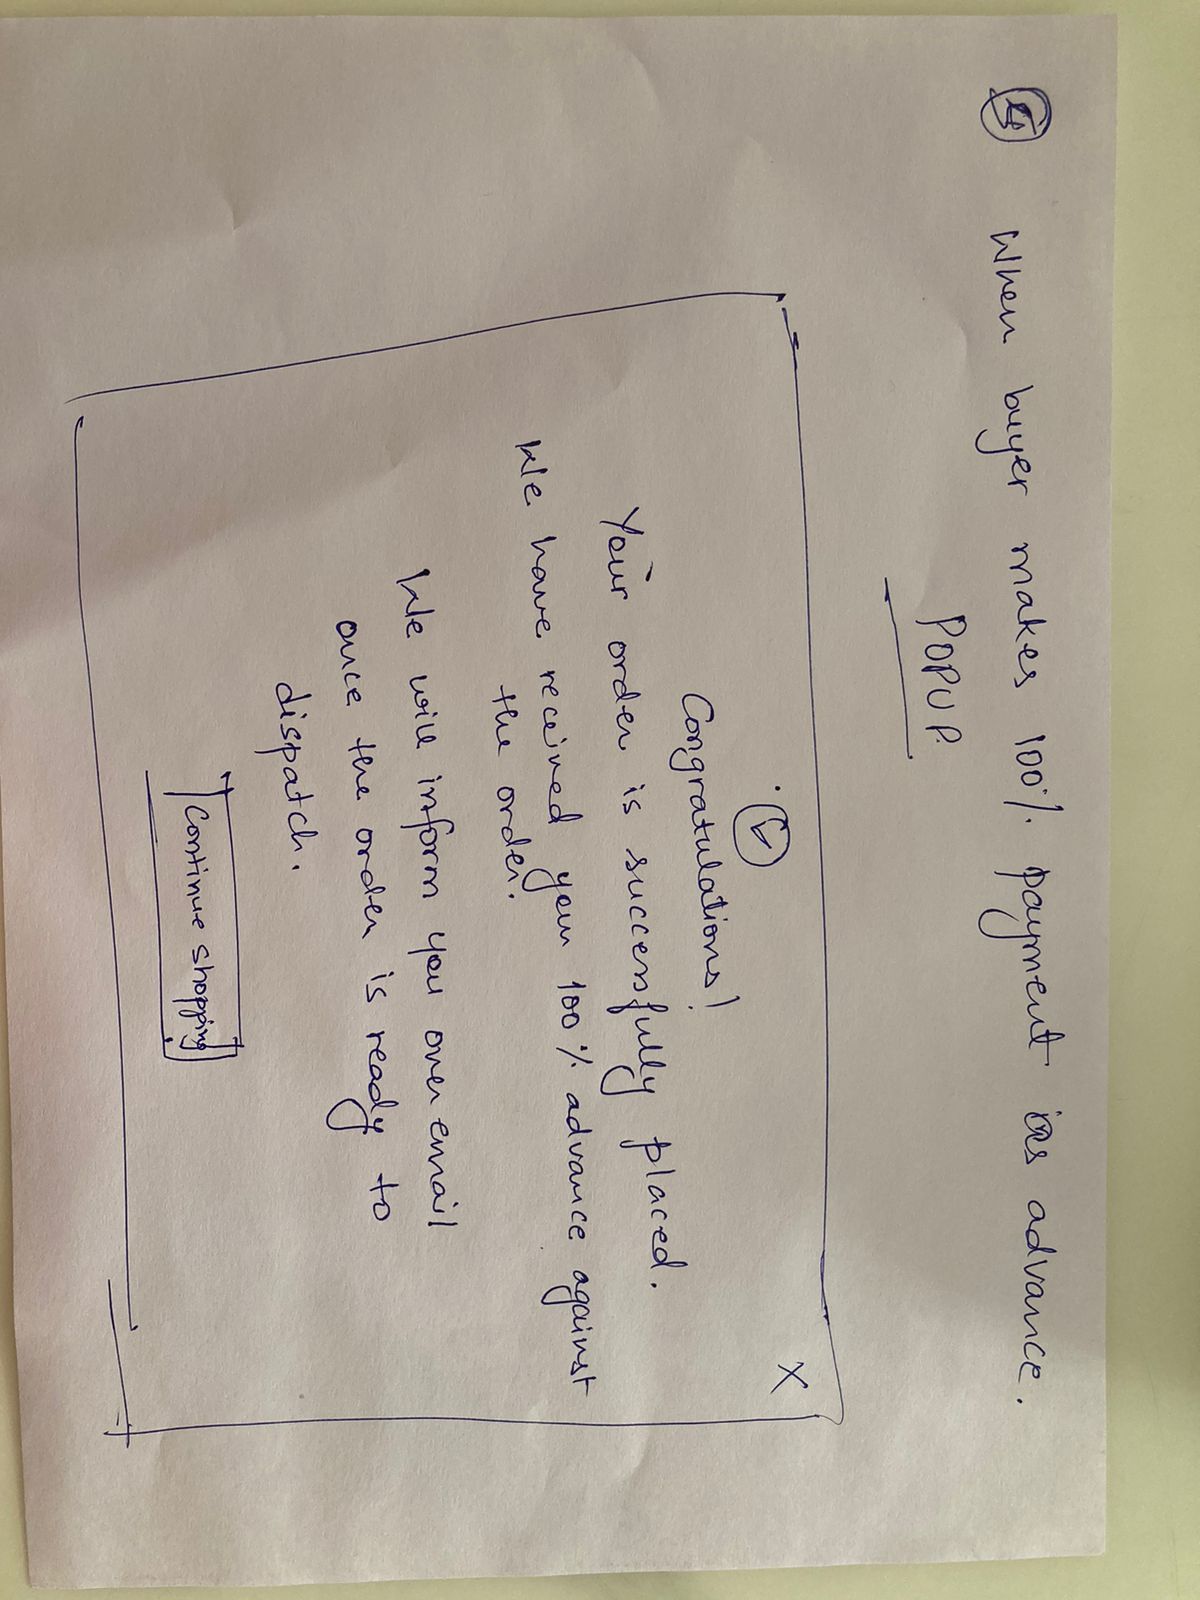 When buyer makes 100% payment as advance.
POPUP.
X
Congratulations!
Your order is successfully placed.
We have received your 100% advance against
the order.
We will inform you over email
once the order is ready to
dispatch.
Continue shopping